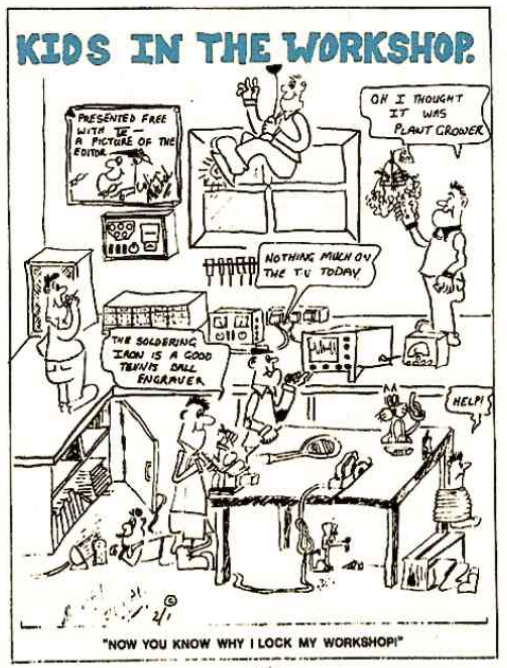 KIDS IN THE WORKSHOP.
PRESENTED FREE
WITH
A PICTURE OF THE
EDITOR
OH I THOUGHT
IT WAS
PLANT GROWER
NOTHING MUCH ON
THE TV TODAY.
THE SOLDERING
IRON IS A GOOD
TENNIS BALL
ENGRAVER
HELP!
"NOW YOU KNOW WHY I LOCK MY WORKSHOP!"